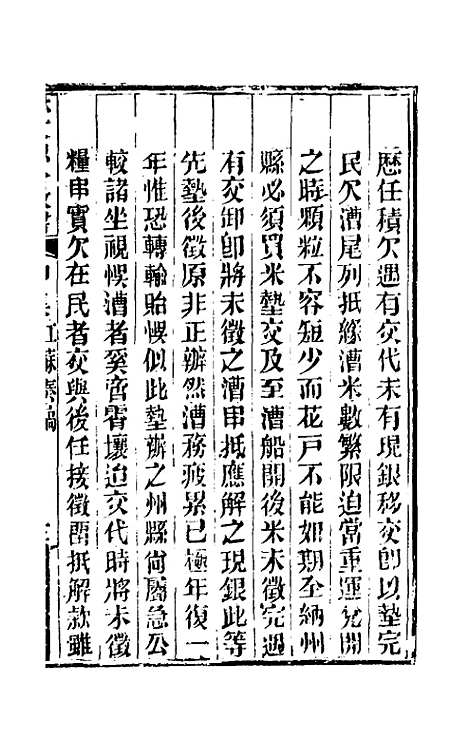 歷任積欠遇有交代未有現銀移交卽以墊完
民欠漕尾列抵緣漕米數繁限迫當重運兌開
之時顆粒不容短少而花戶不能如期全納州
縣必須買米墊交及至漕船開後米未徵完遇
有交卸卽將未徵之漕串抵應解之現銀此等
先墊後徵原非正辦然漕務疲累已極年復一
年惟恐轉輸貽悞似此墊辦之州縣尙屬急公
較諸坐視悞漕者奚啻霄壤迨交代時將未徵
糧串實欠在民者交與後任接徵留抵解款雖
江蘇奏稿